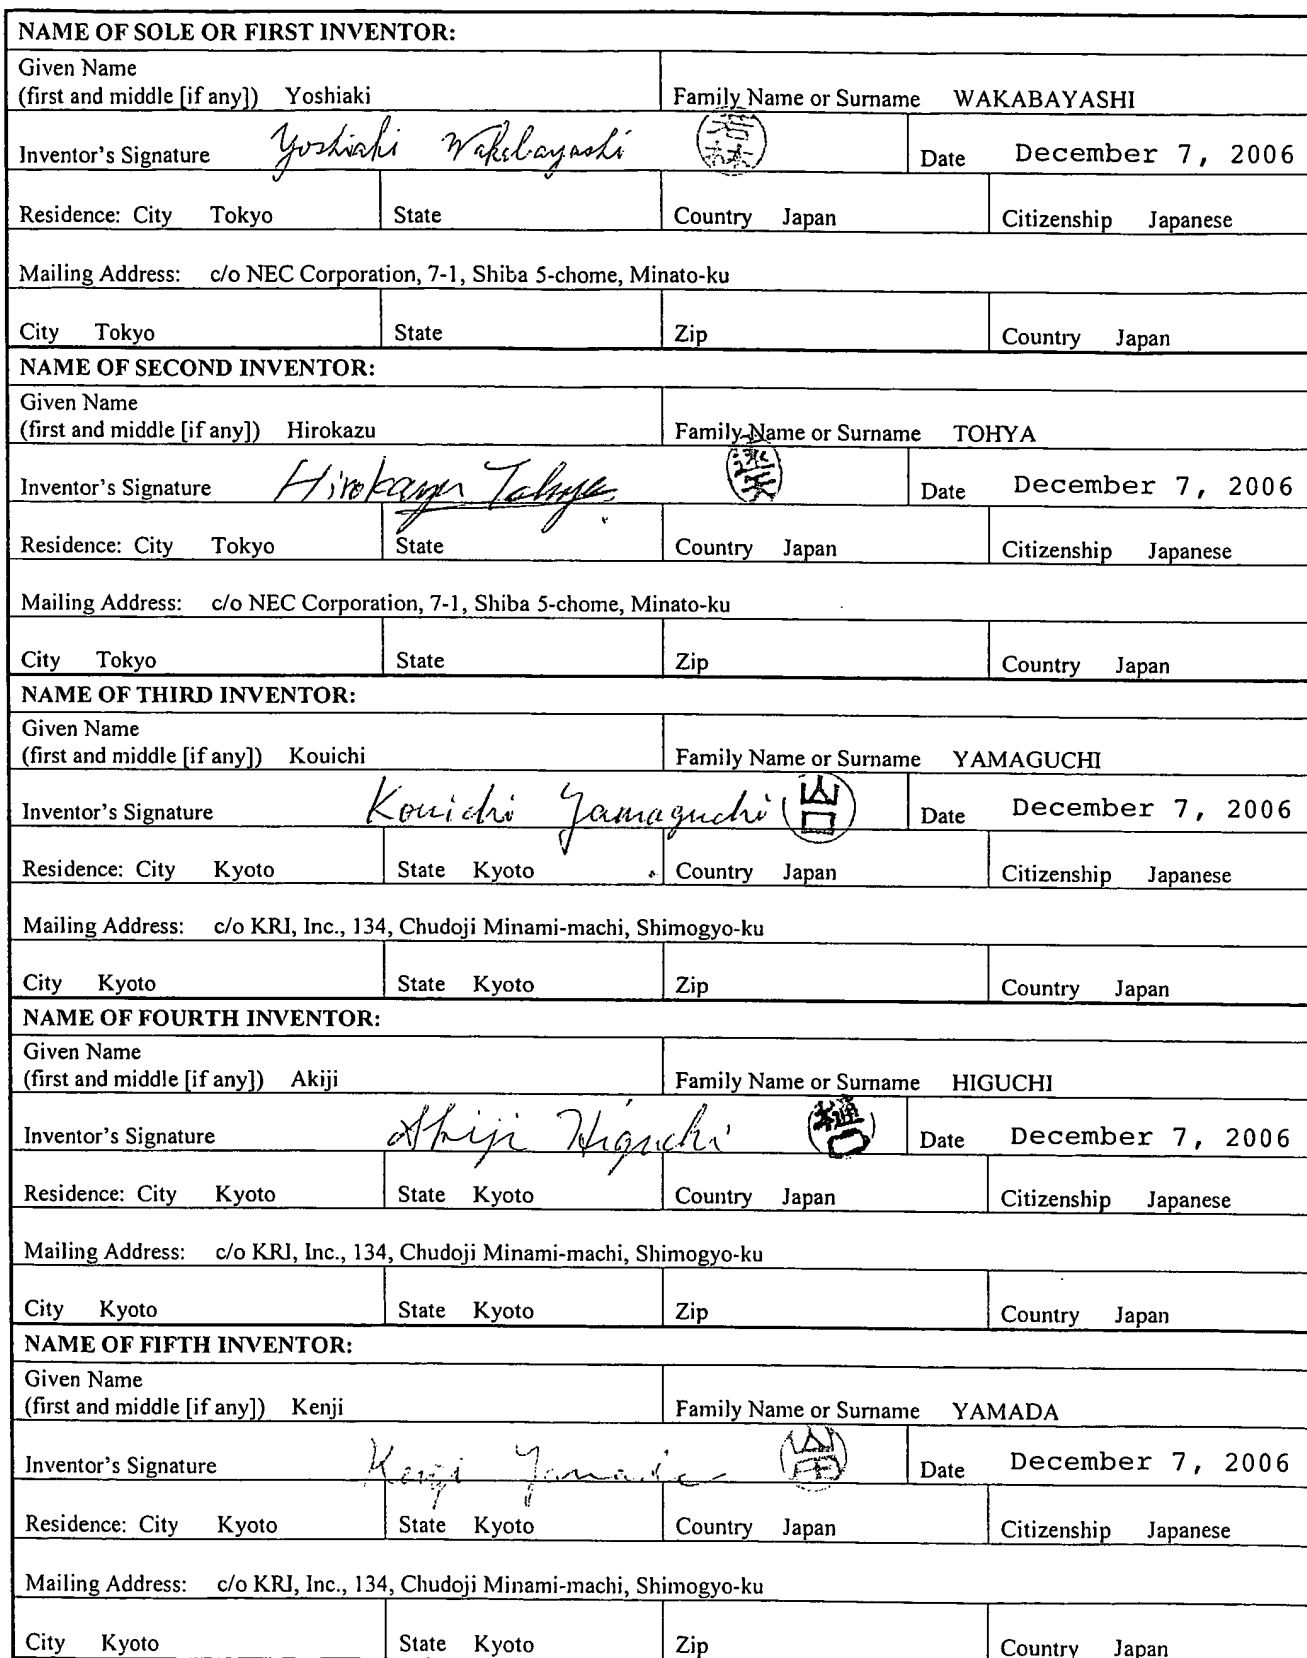 NAME OF SOLE OR FIRST INVENTOR:
Given Name
(first and middle [if any]) Yoshiaki Family Name or Surname WAKABAYASHI
Inventor's Signature Yoshiaki Wakabayashi 若林 Date December 7, 2006
Residence: City Tokyo State Country Japan Citizenship Japanese
Mailing Address: c/o NEC Corporation, 7-1, Shiba 5-chome, Minato-ku
City Tokyo State Zip Country Japan
NAME OF SECOND INVENTOR:
Given Name
(first and middle [if any]) Hirokazu Family Name or Surname TOHYA
Inventor's Signature Hirokazu Tohya 遠矢 Date December 7, 2006
Residence: City Tokyo State Country Japan Citizenship Japanese
Mailing Address: c/o NEC Corporation, 7-1, Shiba 5-chome, Minato-ku
City Tokyo State Zip Country Japan
NAME OF THIRD INVENTOR:
Given Name
(first and middle [if any]) Kouichi Family Name or Surname YAMAGUCHI
Inventor's Signature Kouichi Yamaguchi 山口 Date December 7, 2006
Residence: City Kyoto State Kyoto Country Japan Citizenship Japanese
Mailing Address: c/o KRI, Inc., 134, Chudoji Minami-machi, Shimogyo-ku
City Kyoto State Kyoto Zip Country Japan
NAME OF FOURTH INVENTOR:
Given Name
(first and middle [if any]) Akiji Family Name or Surname HIGUCHI
Inventor's Signature Akiji Higuchi 樋口 Date December 7, 2006
Residence: City Kyoto State Kyoto Country Japan Citizenship Japanese
Mailing Address: c/o KRI, Inc., 134, Chudoji Minami-machi, Shimogyo-ku
City Kyoto State Kyoto Zip Country Japan
NAME OF FIFTH INVENTOR:
Given Name
(first and middle [if any]) Kenji Family Name or Surname YAMADA
Inventor's Signature Kenji Yamada 山田 Date December 7, 2006
Residence: City Kyoto State Kyoto Country Japan Citizenship Japanese
Mailing Address: c/o KRI, Inc., 134, Chudoji Minami-machi, Shimogyo-ku
City Kyoto State Kyoto Zip Country Japan